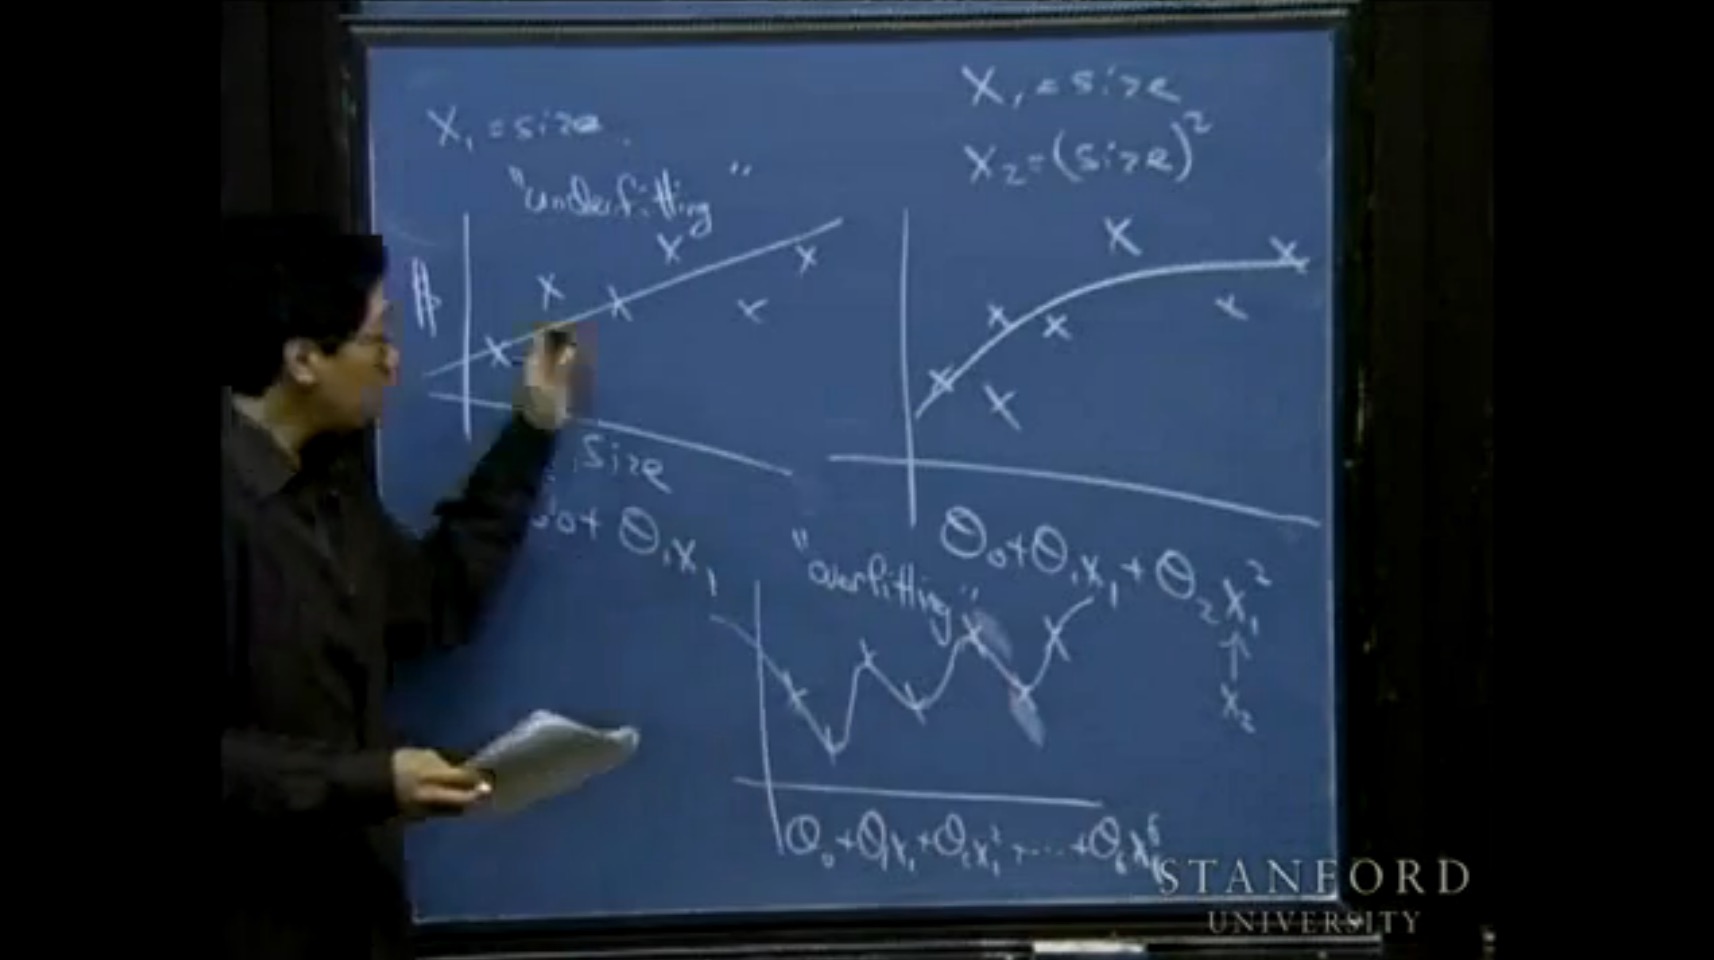 x₁ = size
"underfitting"
$
size
θ₁x₁
x₁ = size
x₂ = (size)²
θ₀ + θ₁x₁ + θ₂x₁²
↑
x₂
"overfitting"
θ₀ + θ₁x₁ + θ₂x₁² + .... + θ₆x₁⁶
STANFORD
UNIVERSITY